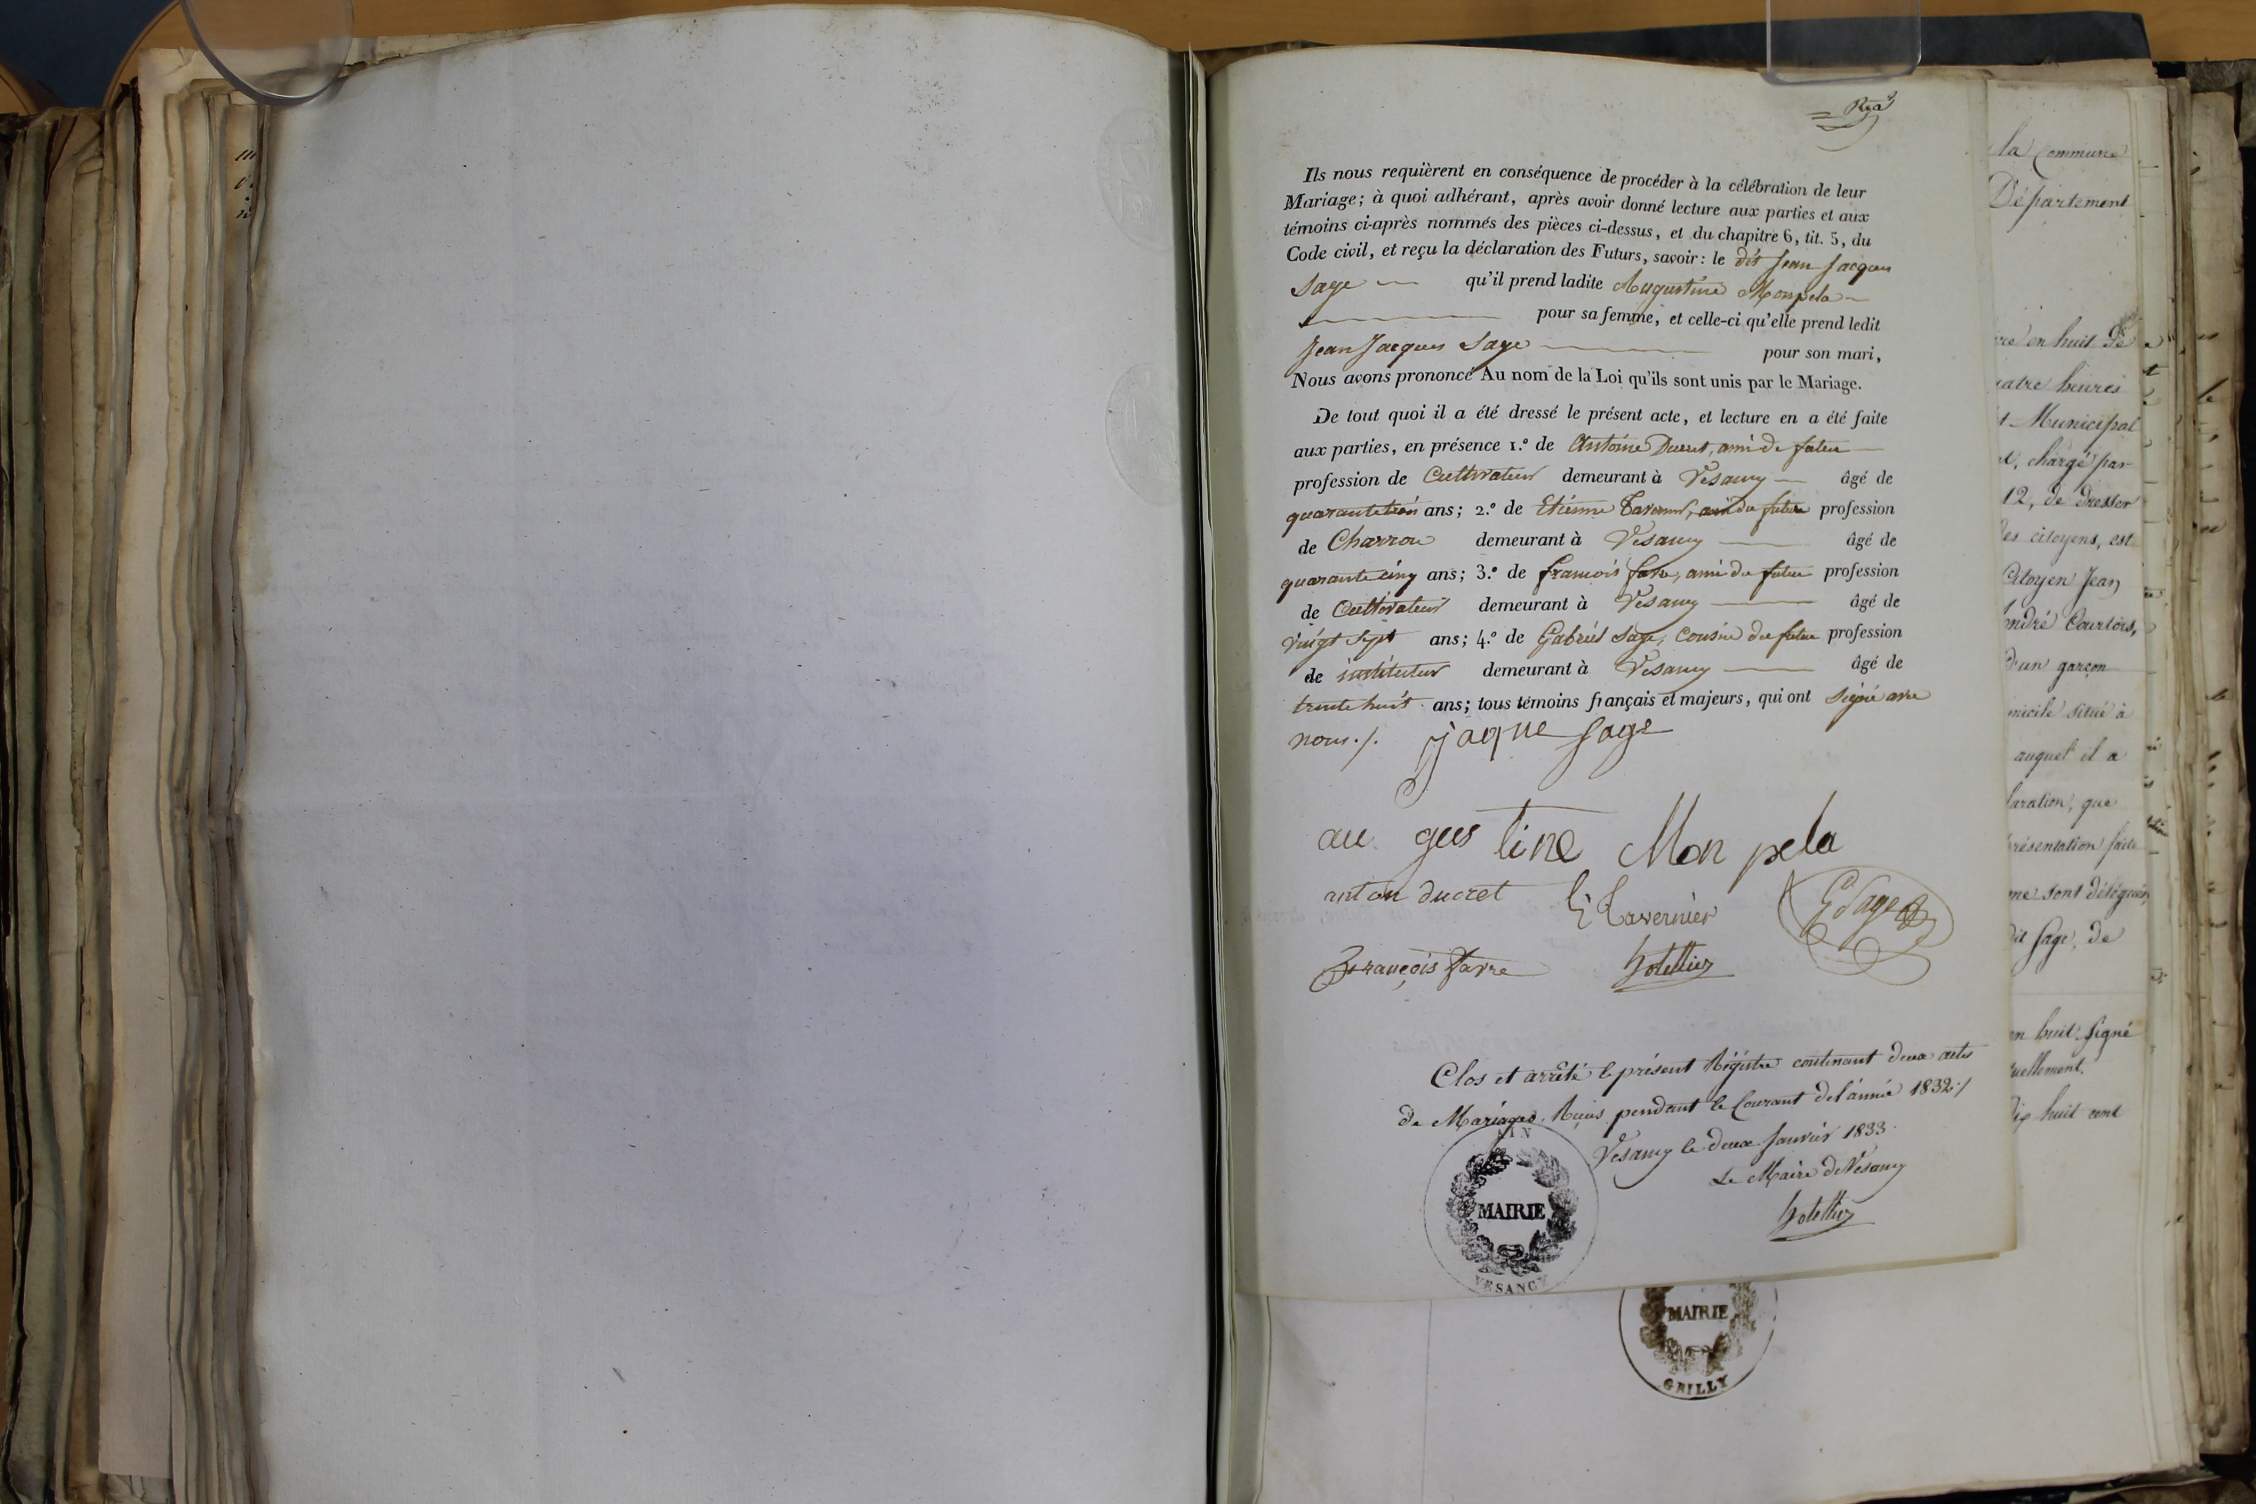 Ils nous requièrent en conséquence de procéder à la célébration de leur
Mariage; à quoi adhérant, après avoir donné lecture aux parties et aux
témoins ci-après nommés des pièces ci-dessus, et du chapitre 6, tit. 5, du
Code civil, et reçu la déclaration des Futurs, savoir: le dit Jean Jacques
Sage qu'il prend ladite Augustine Monpela
pour sa femme, et celle-ci qu'elle prend ledit
Jean Jacques Sage pour son mari,
Nous avons prononcé Au nom de la Loi qu'ils sont unis par le Mariage.
De tout quoi il a été dressé le présent acte, et lecture en a été faite
aux parties, en présence 1.º de Antoine Ducret, ami du futur
profession de Cultivateur demeurant à Vesancy âgé de
quarante trois ans; 2.º de Etienne Tavernier, ami du futur profession
de Charron demeurant à Vesancy âgé de
quarante cinq ans; 3.º de francois favre, ami du futur profession
de Cultivateur demeurant à Vesancy âgé de
vingt sept ans; 4.º de Gabriel Sage, cousin du futur profession
de instituteur demeurant à Vesancy âgé de
trente huit ans; tous témoins français et majeurs, qui ont signé avec
nous ./. jaque sage
au gus tine Mon pela
anton ducret E Tavernier G Sage
françois favre hotellier
Clos et arrêté le présent Régistre contenant deux actes
de Mariages Reçus pendant le Courant de l'année 1832 ./
Vesancy le deux Janvier 1833.
Le Maire de Vesancy
hotellier
AIN
MAIRIE
VESANCY
la Commune
Département
en huit de
quatre heures
Municipal
chargé par
12, de dresser
les citoyens, est
Citoyen Jean
André Courtois,
d'un garçon
situé à
auquel il a
que
présentation faite
sont délégués
dit Sage, de
en huit. Signé
Dix huit cent
MAIRIE
GRILLY